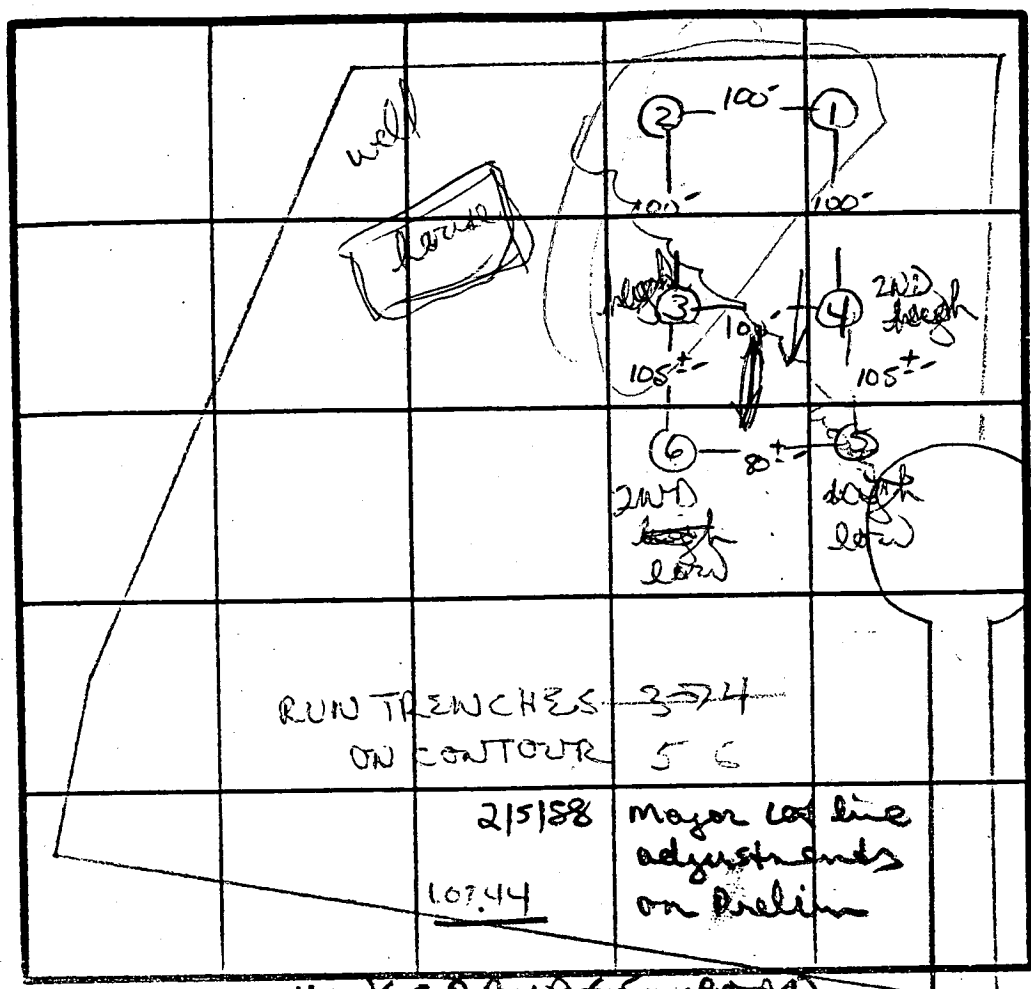 well
house
2 100' 1
100' 100'
high 3 100' 4 2ND high
105±' 105±'
6 80±' 5
2ND high low
high low
RUN TRENCHES 3→4
ON CONTOUR 5 6
2/5/88 Major lot line
adjustments
on Prelim